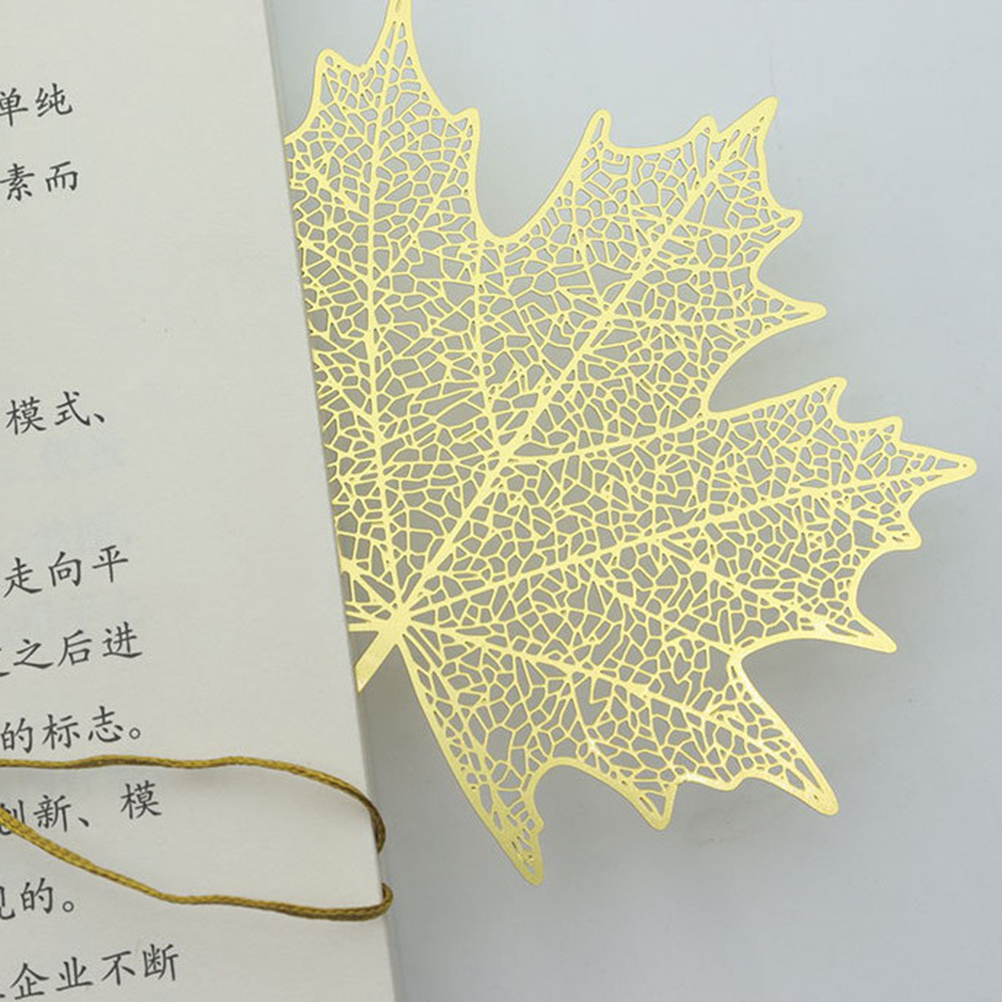 单纯
素而
模式、
走向平
之后进
的标志。
创新、模
见的。
企业不断